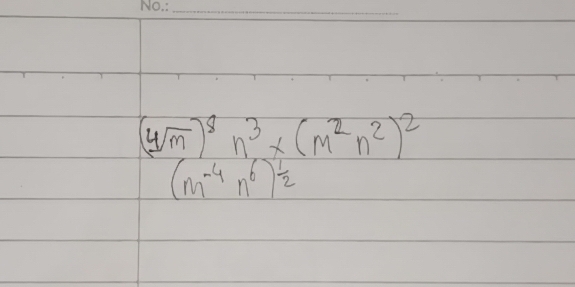 No.:
(∜m)⁸ n³ × (m² n²)²
(m⁻⁴ n⁶)^½